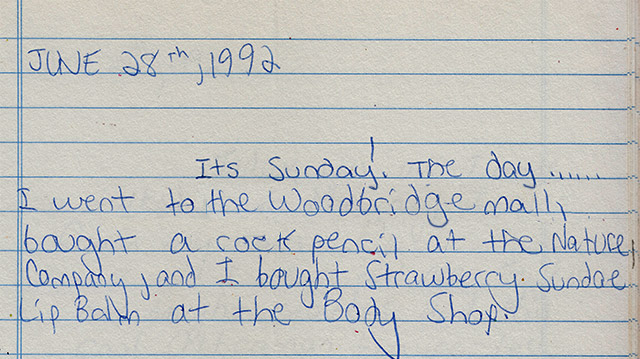 JUNE 28th, 1992
Its Sunday! The day ......
I went to the Woodbridge mall,
bought a rock pencil at the Nature
Company, and I bought Strawberry Sundae
Lip Balm at the Body Shop.